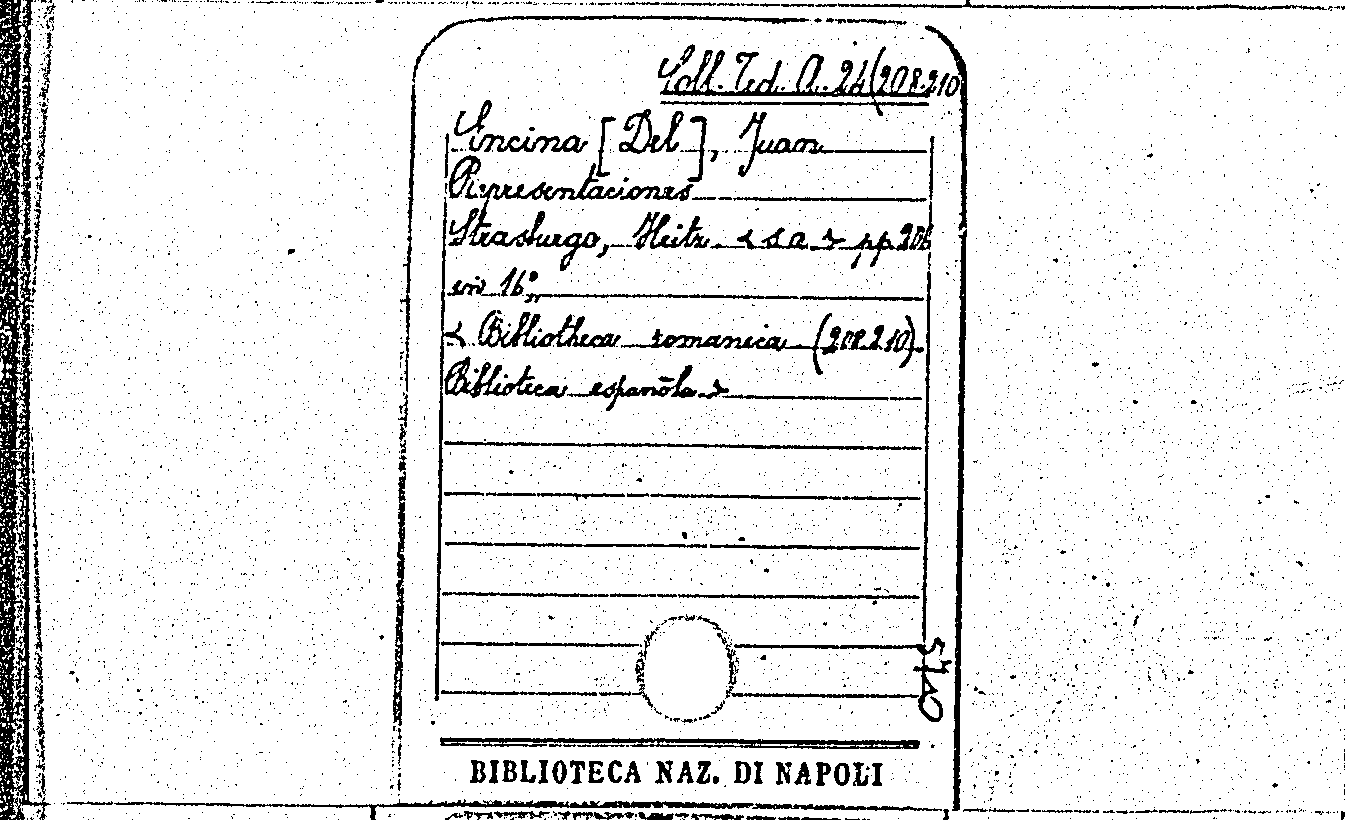 Coll. Ted. A. 24(208.210
Encina [Del], Juan
Representaciones
Strasburgo, Heitz < s a > pp. 206
in 16°
< Bibliotheca romanica (208.210).
Biblioteca espanõla >
BIBLIOTECA NAZ. DI NAPOLI